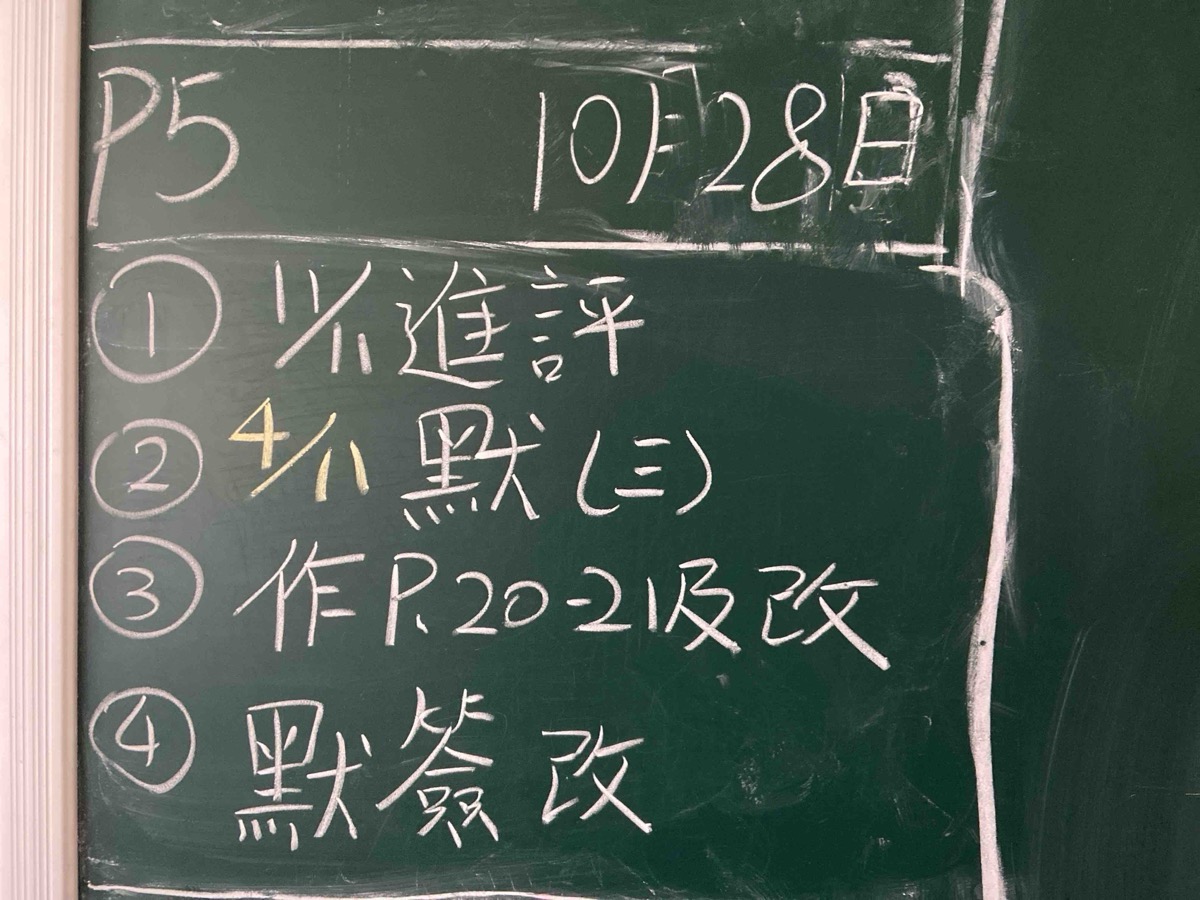 P5 10月28日
① 11/11 進評
② 4/11 默(三)
③ 作P.20-21及改
④ 默簽改